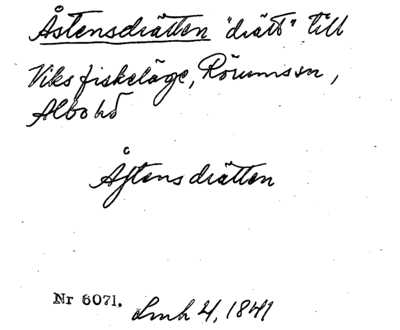 Åstensdrätten "drätt" till
Viks fiskeläge, Rörums sn,
Albo hd
Åftensdrätten
Nr 6071. Lmh 4, 1841